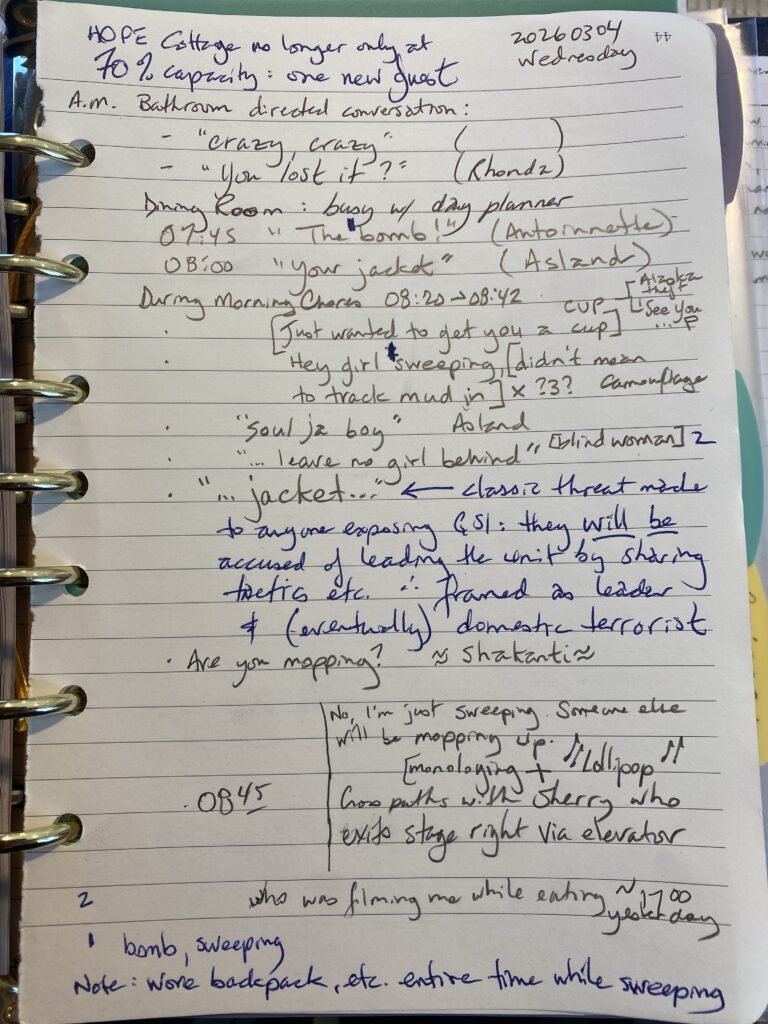 HOPE Cottage no longer only at
70% capacity: one new guest
20260304
Wednesday
44
A.M. Bathroom directed conversation:
- "crazy, crazy" ( )
- "You lost it?" (Rhonda)
Dining Room: busy w/ day planner
07:45 "The bomb!" (Antoinnette)
08:00 "your jacket" (Asland)
During Morning Chores 08:20→08:42
CUP
theft
See you
[Just wanted to get you a cup]
Hey girl sweeping, [didn't mean
to track mud in] x ?3? Camouflage
· "Soul ja boy" Asland
"... leave no girl behind" [blind woman] 2
· "... jacket..." ← classic threat made
to anyone exposing GSI: they will be
accused of leading the unit by sharing
tactics etc. ∴ framed as leader
& (eventually) domestic terrorist
· Are you mopping? ≈ Shakanti ≈
No, I'm just sweeping. Someone else
will be mopping up.
[monologing + "Lollipop"
· 0845 Cross paths with Sherry who
exits stage right via elevator
2 who was filming me while eating ~1700
yesterday
1 bomb, sweeping
Note: wore backpack, etc. entire time while sweeping